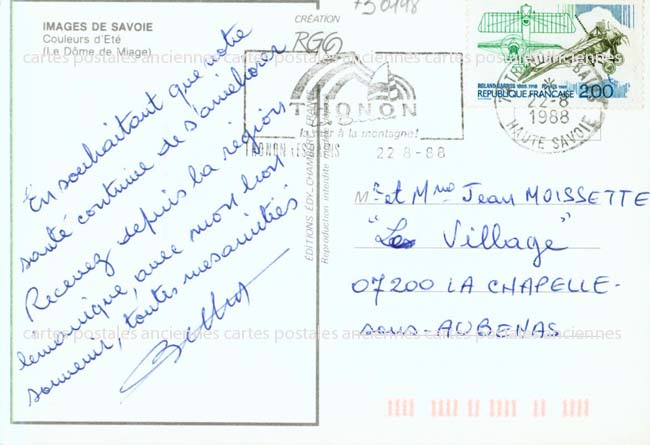 IMAGES DE SAVOIE
Couleurs d'Eté
(Le Dôme de Miage)
En souhaitant que votre
santé continue de s'améliorer
Recevez depuis la région
lémanique, avec mon bon
souvenir, toutes mes amitiés
CRÉATION
RGG
EDITIONS EDY - CHAMBÉRY
Reproduction interdite
730498
THONON
la mer à la montagne!
THONON LES BAINS 22-8-88
ROLAND GARROS 1888-1918
REPUBLIQUE FRANÇAISE 2,00
22-8
1988
HAUTE SAVOIE
Mr et Mme Jean MOISSETTE
"Le Village"
07200 LA CHAPELLE-
sous-AUBENAS
cartes postales anciennes cartes postales anciennes cartes postales anciennes
cartes postales anciennes cartes postales anciennes cartes postales anciennes